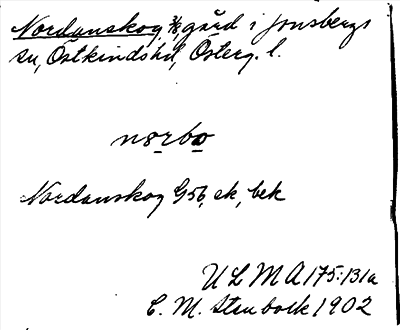 Nordanskog, 3/8, gård i Jonsbergs
sn, Östkindshd, Österg. l.
norbo
Nordanskog G56, ek, bek
ULMA 175:131a
C. M. Stenbock 1902